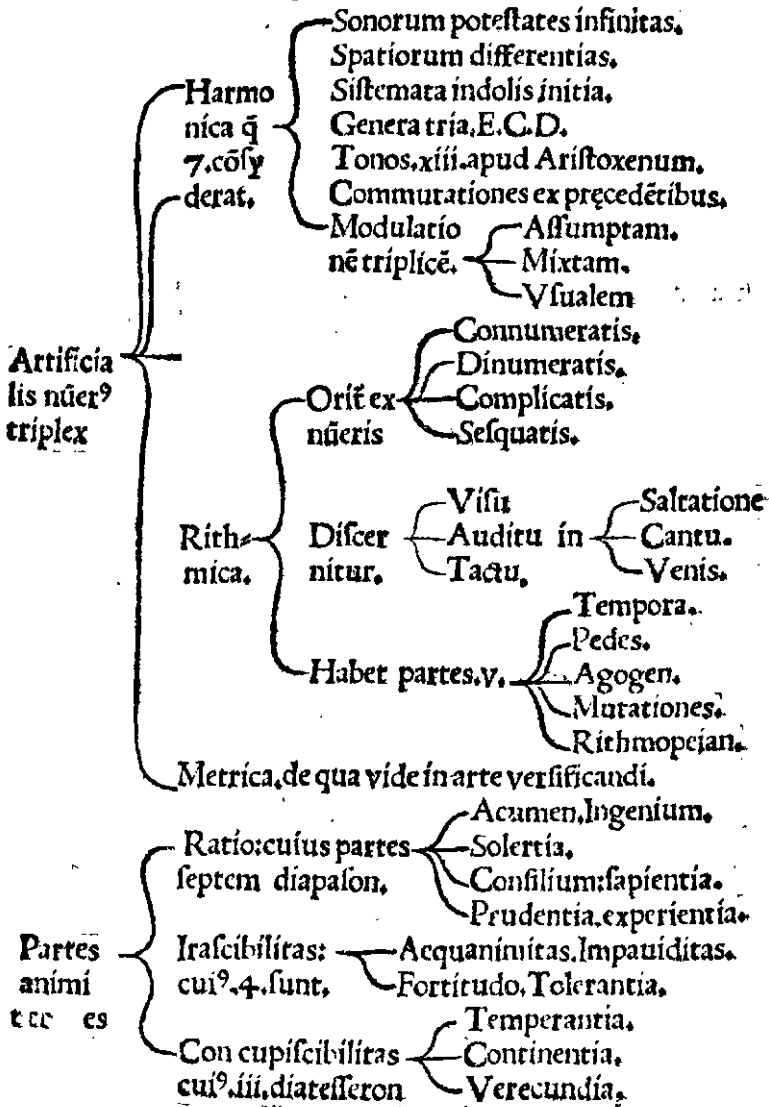 Sonorum poteſtates infinitas.
Spatiorum differentias.
Siſtemata indolis initia.
Genera tria, E.C.D.
Tonos.xiii.apud Ariſtoxenum.
Commutationes ex pręcedētibus.
Harmo
nica q̄
7.cōſy
derat.
Modulatio
nē triplicē.
Aſſumptam.
Mixtam.
Vſualem
Artificia
lis nūerꝰ
triplex
Orit̄ ex
nūeris
Connumeratis.
Dinumeratis.
Complicatis.
Seſquatis.
Rith⸗
mica.
Diſcer
nitur.
Viſu
Auditu in
Tactu.
Saltatione
Cantu.
Venis.
Habet partes.v.
Tempora.
Pedes.
Agogen.
Mutationes.
Rithmopeian.
Metrica.de qua vide in arte verſificandi.
Partes
animi
es
Ratio:cuius partes
ſeptem diapaſon.
Acumen.Ingenium.
Solertia.
Conſilium:ſapientia.
Prudentia.experientia.
Iraſcibilitas:
cuiꝰ.4.ſunt.
Aequanimitas.Impauiditas.
Fortitudo.Tolerantia.
Con cupiſcibilitas
cuiꝰ.iii.diateſſeron
Temperantia.
Continentia.
Verecundia.